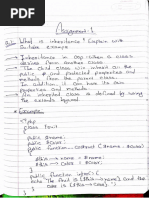 Assignment:1
Q:1 What is inheritance? Explain with
Suitable example
→ Inheritance in OOP = When a class
derives from another class
→ The child class will inherit all the
public & protected properties and
methods from the parent class. In
addition, it can have its own
properties and methods
→ An inherited class is defined by using
the extends keyword.
→ Example
<?php
class fruit
{
public $name;
public $color;
public function __construct ($name $color)
{
$this → name = $name;
$this → color = $color;
}
public function intro() {
echo "The fruit is {$this→name} and the
color is {$this→color}";